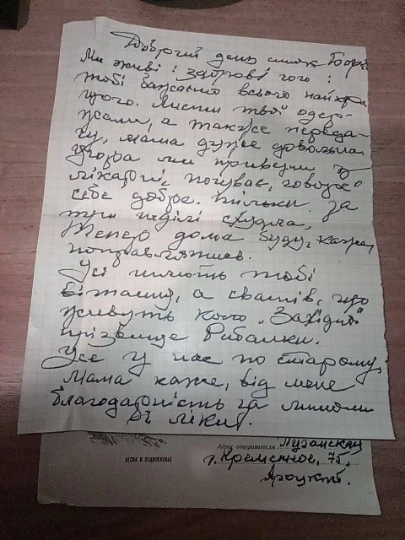 Добрий день синок Боря
Ми живі і здорові чого і
тобі бажаємо всього найкра
щого. Листи твої одер
жали, а также переда
чу, мама дуже довольна
учора ми привезли з
лікарні, почуває, говоре
себе добре. тільки за
три неділі схудла,
Тепер дома буду, каже,
поправлятися.
Усі шлють тобі
вітання, а сватів, що
живуть коло "Західня"
прізвище Рибалки.
Усе у нас по старому,
Мама каже, від мене
благодарність за
ліки.
Адрес отправителя Луганская
г. Кременное, 75,